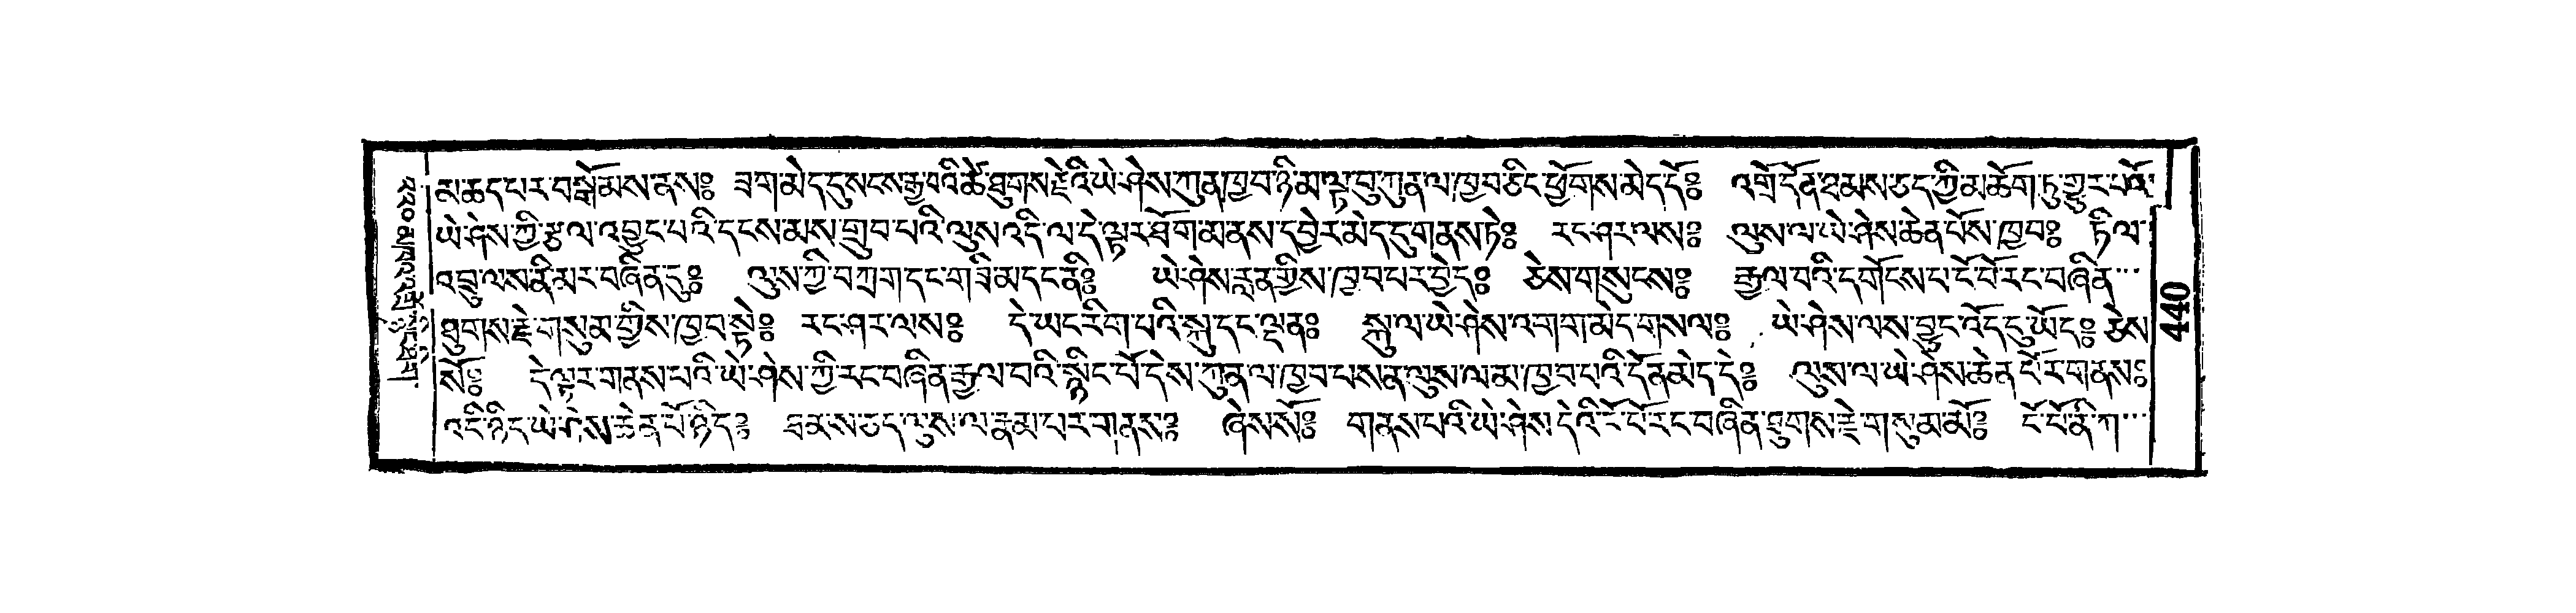 མ་ཆད་པར་བསྒོམས་ནས༔ ཟག་མེད་དུསངས་རྒྱ་བའི་ཚེ་ཐུགས་རྗེའི་ཡེ་ཤེས་ཀུན་ཁྱབ་ཉི་མ་ལྟ་བུ་ཀུན་ལ་ཁྱབ་ཅིང་ཕྱོགས་མེད་དོ༔ འགྲོ་དོན་ཐམས་ཅད་ཀྱི་མཆོག་ཏུ་གྱུར་པའོ་
ཡེ་ཤེས་ཀྱི་རྩལ་འབྱུང་པའི་དངས་མས་གྲུབ་པའི་ལུས་འདི་ལ་དེ་ལྟར་ཐོག་མ་ནས་དབྱེར་མེད་དུ་གནས་ཏེ༔ རང་ཤར་ལས༔ ལུས་ལ་ཡེ་ཤེས་ཆེན་པོས་ཁྱབ༔ ཏིལ་
འབྲུ་ལས་ནི་མར་བཞིན་དུ༔ ལུས་ཀྱི་བཀྲག་དང་གཟི་མདང་ནི༔ ཡེ་ཤེས་རླན་གྱིས་ཁྱབ་པར་བྱེད༔ ཅེས་གསུངས༔ རྒྱལ་བའི་དགོངས་པ་ངོ་བོ་རང་བཞིན་
ཐུགས་རྗེ་གསུམ་གྱིས་ཁྱབ་སྟེ༔ རང་ཤར་ལས༔ དེ་ཡང་རིག་པའི་སྐུ་དང་ལྡན༔ སྐུ་ལ་ཡེ་ཤེས་འགག་མེད་གསལ༔ ཡེ་ཤེས་ལས་བྱུང་འོད་དུ་ཡོད༔ ཅེས
སོ༔ དེ་ལྟར་གནས་པའི་ཡེ་ཤེས་ཀྱི་རང་བཞིན་རྒྱལ་བའི་སྙིང་པོ་དེས་ཀུན་ལ་ཁྱབ་པསན་ལུས་ལ་མ་ཁྱབ་པའི་དོན་མེད་དེ༔ ལུས་ལ་ཡེ་ཤེས་ཆེན་པོར་གནས༔
འདི་ཉིད་ཡེ་ཤེས་ཆེན་པོ་ཉིད༔ ཐམས་ཅད་ལུས་ལ་རྣམ་པར་གནས༔ ཞེས་སོ༔ གནས་པའི་ཡེ་ཤེས་དེའི་ངོ་བོ་རང་བཞིན་ཐུགས་རྗེ་གསུམ་མོ༔ ངོ་བོ་ནི་ཀ་